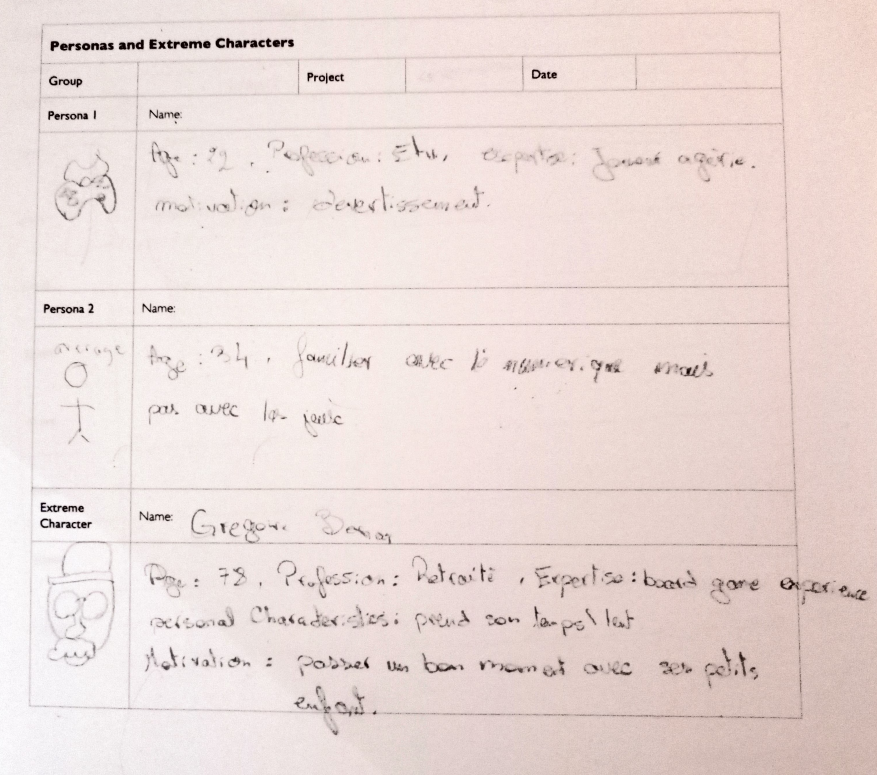 Personas and Extreme Characters
Group Project Date
Persona 1 Name:
Age : 22 , Profession : Etu, expertise : Joueur aguérie.
motivation : divertissement.
Persona 2 Name:
average
Age : 34 , familier avec le numérique mais
pas avec les jeux
Extreme Character Name: Gregoire
Age : 78 , Profession : Retraité , Expertise : board game experience
personal Characteristics : prend son temps\ lent
Motivation : passer un bon moment avec ses petits
enfant.